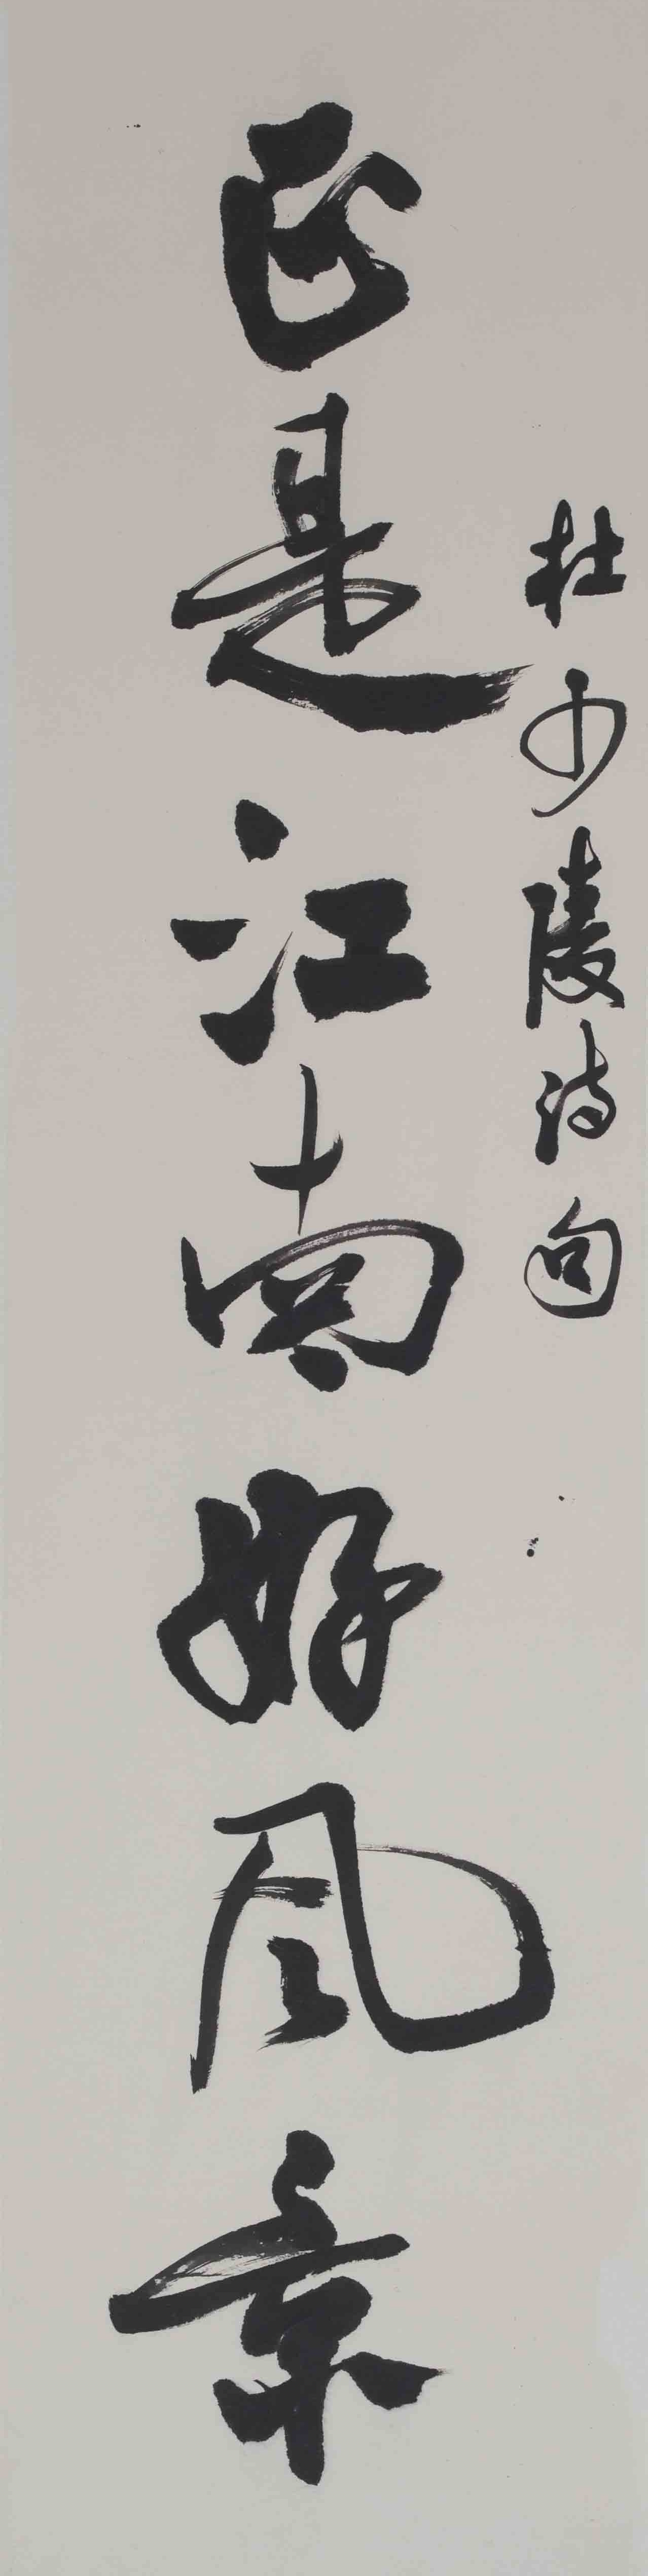 杜少陵诗句
正是江南好风景